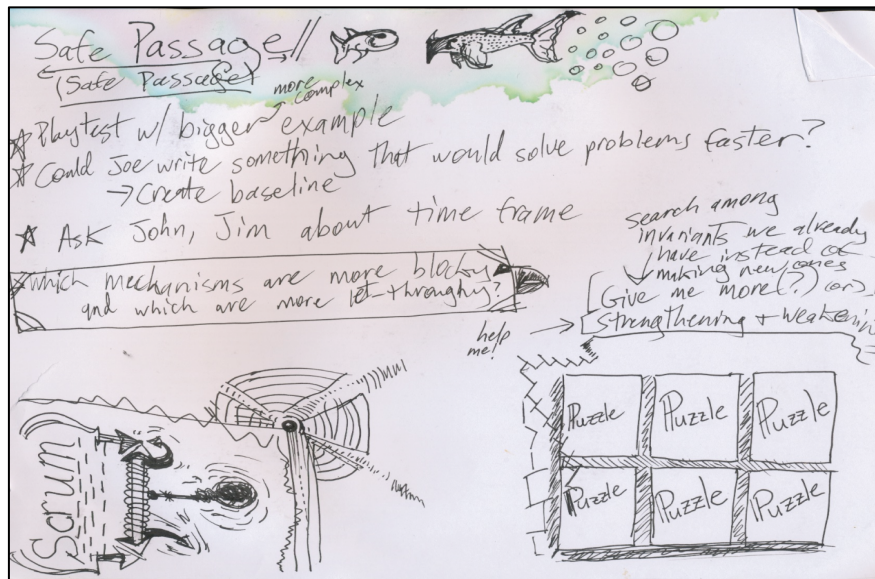 Safe Passage!!
(Safe Passage)
more
complex
☆ Playtest w/ bigger example
☆ Could Joe write something that would solve problems faster?
→ Create baseline
☆ Ask John, Jim about time frame
which mechanisms are more blocky
and which are more let-throughy?
search among
invariants we already
have instead of
making new ones
Give me more (?) (or)
Strengthening + weakenin
help
me!
Scrum
Puzzle Puzzle Puzzle
Puzzle Puzzle Puzzle